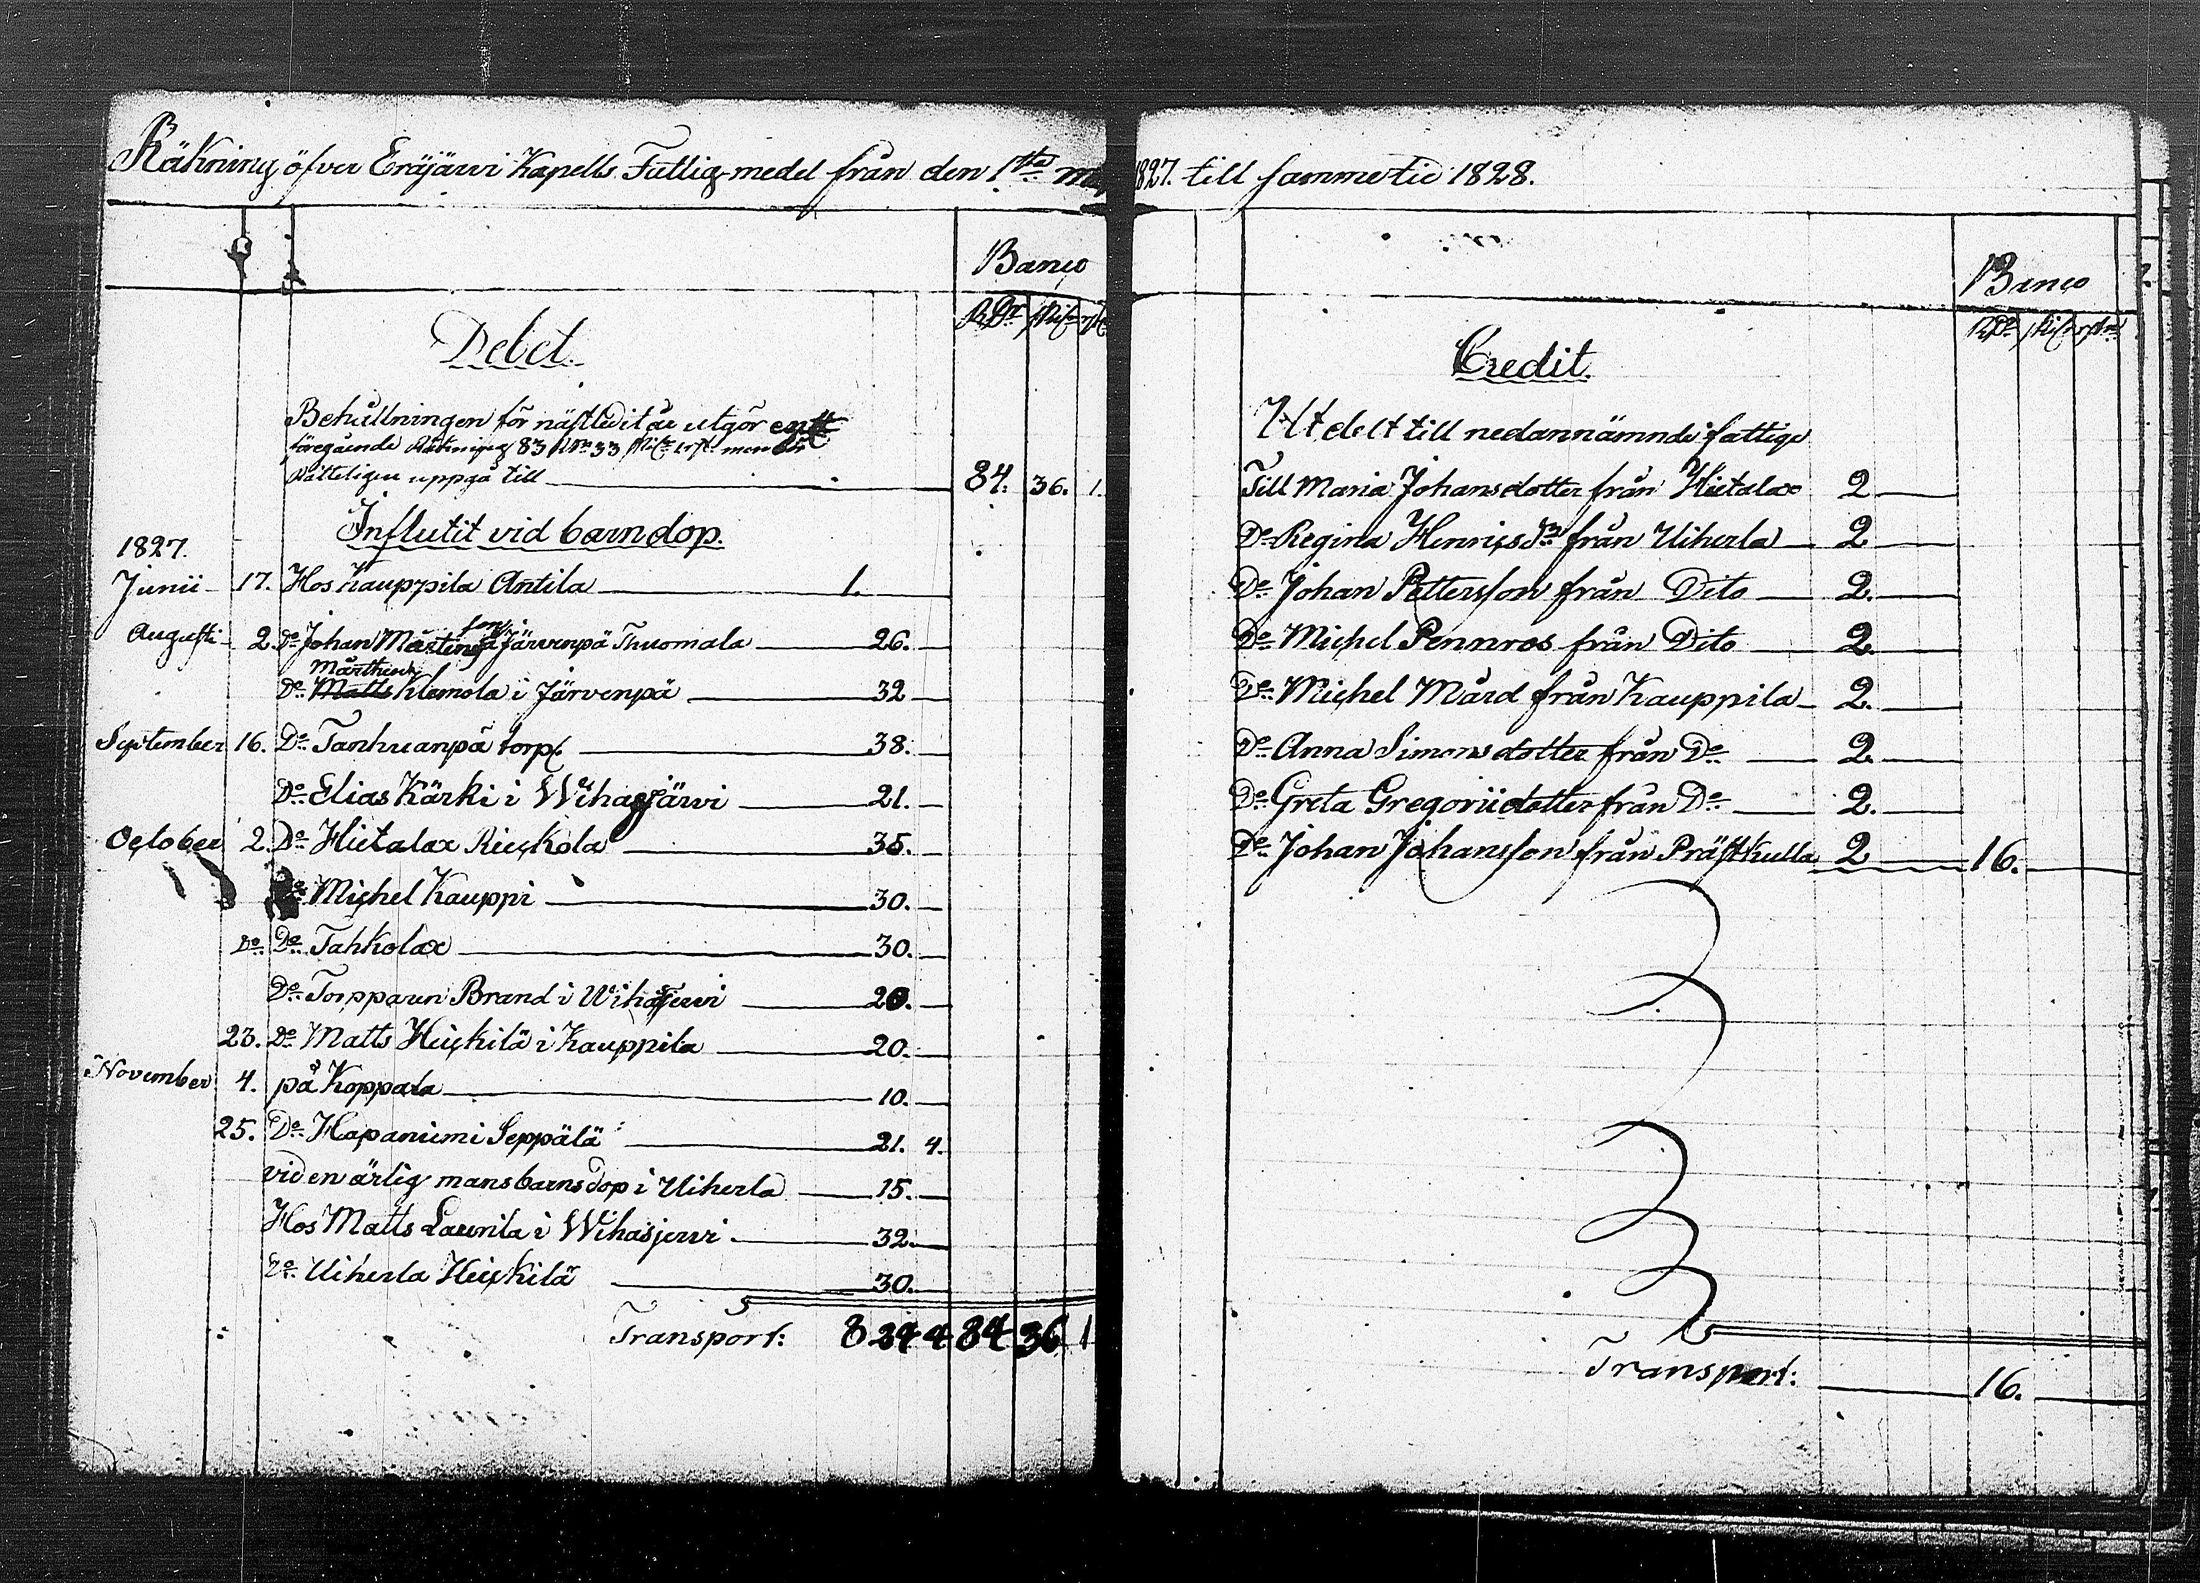 Räkning öfver Eräjärvi Kapells Fattig-medel från den 1sta
1827. till samme tid 1828.
Banco
RDr
Debet.
Behållningen för nästledit år utgör
föregående Räkning 83 RDr 33 men bör
Rätteligen uppgå till 84. 36. 1.
Influtit vid barndop.
1827.
Junii 17. Hos Kauppila Antila 1.
Augusti 2. Do Johan Mårtensson i Järvenpä Thuomala 26.
Do Matts Klemola i Järvenpä 32
September 16. Do Tanhuanpä torp 38.
Do Elias Kärki i Wihasjärvi 21.
October 2. Do Hietalax Rieckola 35.
Do Michel Kauppi 30.
Do Do Tahkolax 30.
Do Torpparen Brand i Wihasjervi 20.
23. Do Matts Heickilä i Kauppila 20.
November 4. på Koppala 10.
25. Do Hapaniemi Seppälä 21. 4.
vid en ärlig mansbarns dop i Uiherla 15.
Hos Matts Laurila i Wihasjervi 32.
Do Uiherla Heickilä 30.
Transport: 8 24 4 84 36 1
Banco
RDr
Credit.
Utdelt till nedannämnde fattige
Till Maria Johansdotter från Hietalax 2
Do Regina Henricsdr från Uiherla 2
Do Johan Pettersson från Dito 2.
Do Michel Pennros från Dito 2.
Do Michel Mård från Kauppila 2.
Do Anna Simonsdotter från Do 2.
Do Greta Gregoriidotter från Do 2.
Do Johan Johansson från Prästkulla 2 16.
Transport: 16.